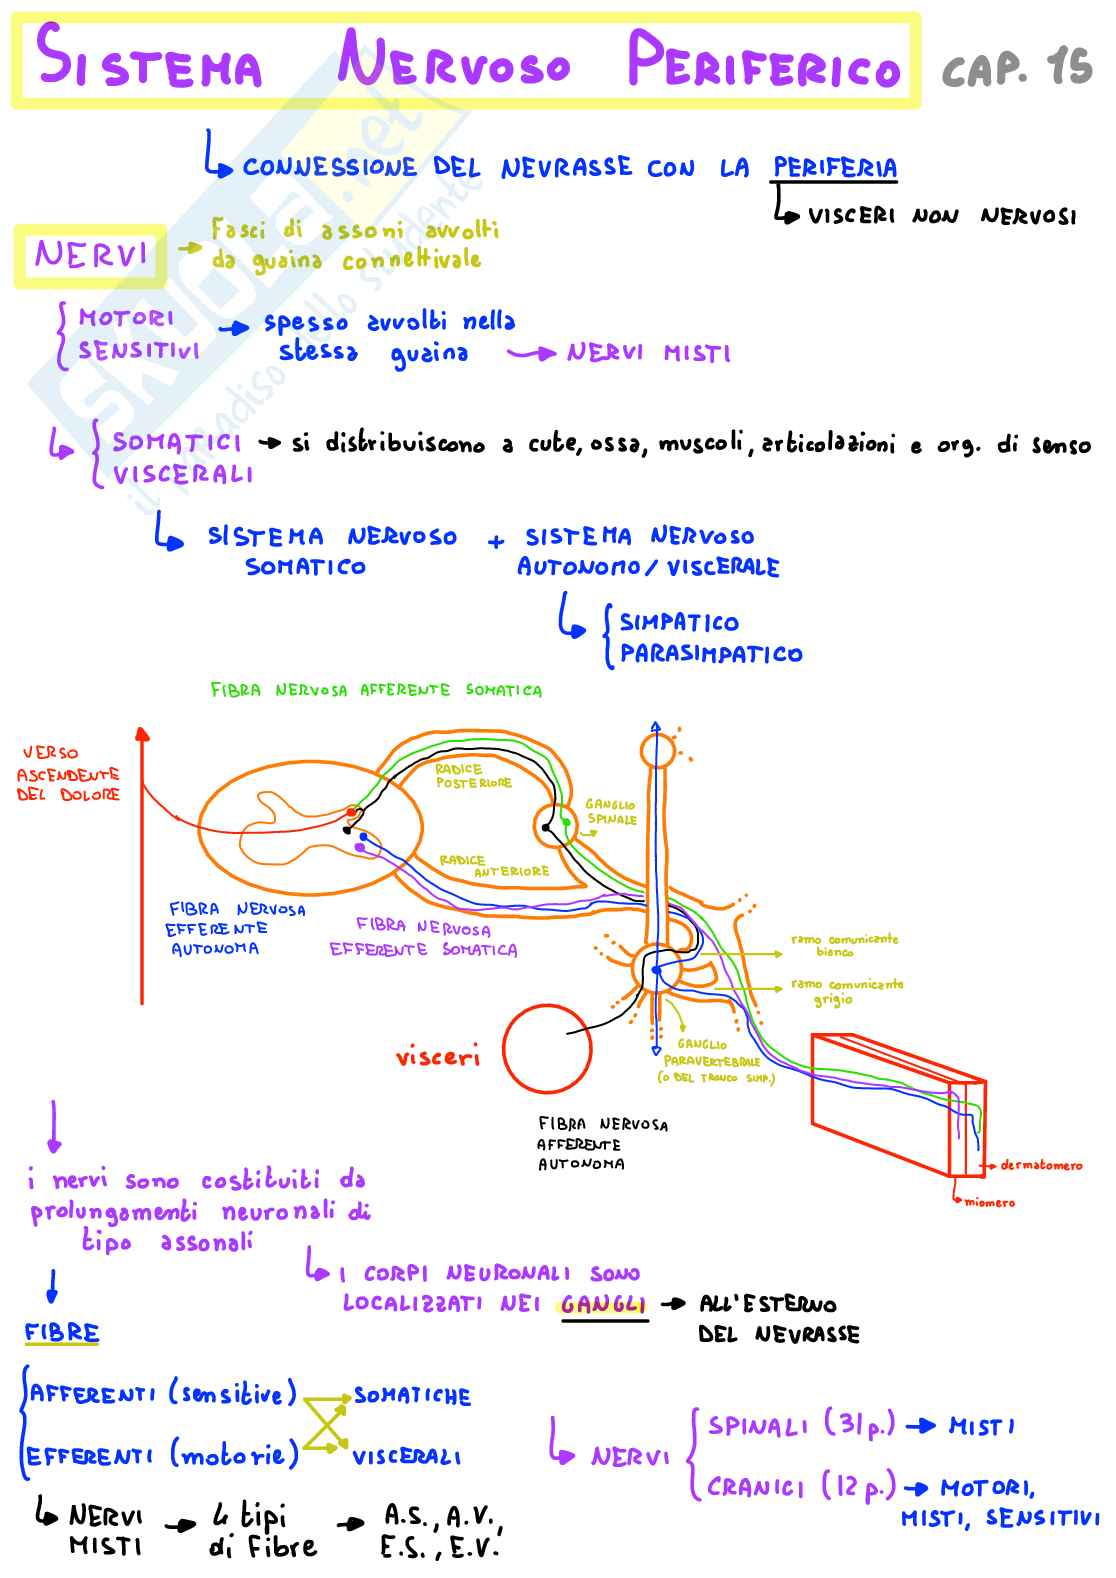 SISTEMA NERVOSO PERIFERICO CAP. 15
CONNESSIONE DEL NEVRASSE CON LA PERIFERIA
VISCERI NON NERVOSI
NERVI
Fasci di assoni avvolti
da guaina connettivale
MOTORI
SENSITIVI
spesso avvolti nella
stessa guaina
NERVI MISTI
SOMATICI
VISCERALI
si distribuiscono a cute, ossa, muscoli, articolazioni e org. di senso
SISTEMA NERVOSO
SOMATICO
+
SISTEMA NERVOSO
AUTONOMO / VISCERALE
SIMPATICO
PARASIMPATICO
SKUOLA.net
il paradiso dello studente
FIBRA NERVOSA AFFERENTE SOMATICA
VERSO
ASCENDENTE
DEL DOLORE
RADICE
POSTERIORE
GANGLIO
SPINALE
RADICE
ANTERIORE
FIBRA NERVOSA
EFFERENTE
AUTONOMA
FIBRA NERVOSA
EFFERENTE SOMATICA
ramo comunicante
bianco
ramo comunicante
grigio
GANGLIO
PARAVERTEBRALE
(O DEL TRONCO SIMP.)
visceri
FIBRA NERVOSA
AFFERENTE
AUTONOMA
dermatomero
miomero
i nervi sono costituiti da
prolungamenti neuronali di
tipo assonali
I CORPI NEURONALI SONO
LOCALIZZATI NEI GANGLI
ALL'ESTERNO
DEL NEVRASSE
FIBRE
AFFERENTI (sensitive)
SOMATICHE
EFFERENTI (motorie)
VISCERALI
NERVI
MISTI
4 tipi
di Fibre
A.S., A.V.,
E.S., E.V.
NERVI
SPINALI (31 p.)
MISTI
CRANICI (12 p.)
MOTORI,
MISTI, SENSITIVI